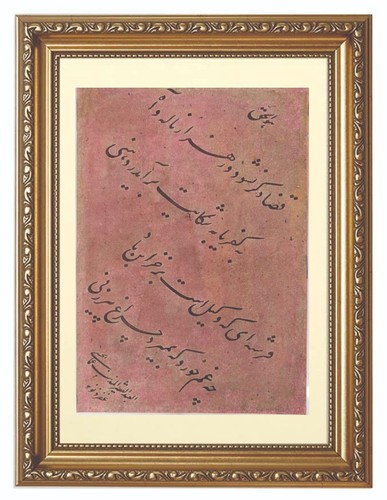 هوالحق
قضا دگر نشود ور هزار ناله و آه
بکفر یا به شکایت برآید از دهنی
فرشته‌ای که وکیل است بر خزاین باد
چه غم خورد که بمیرد چراغ پیرزنی